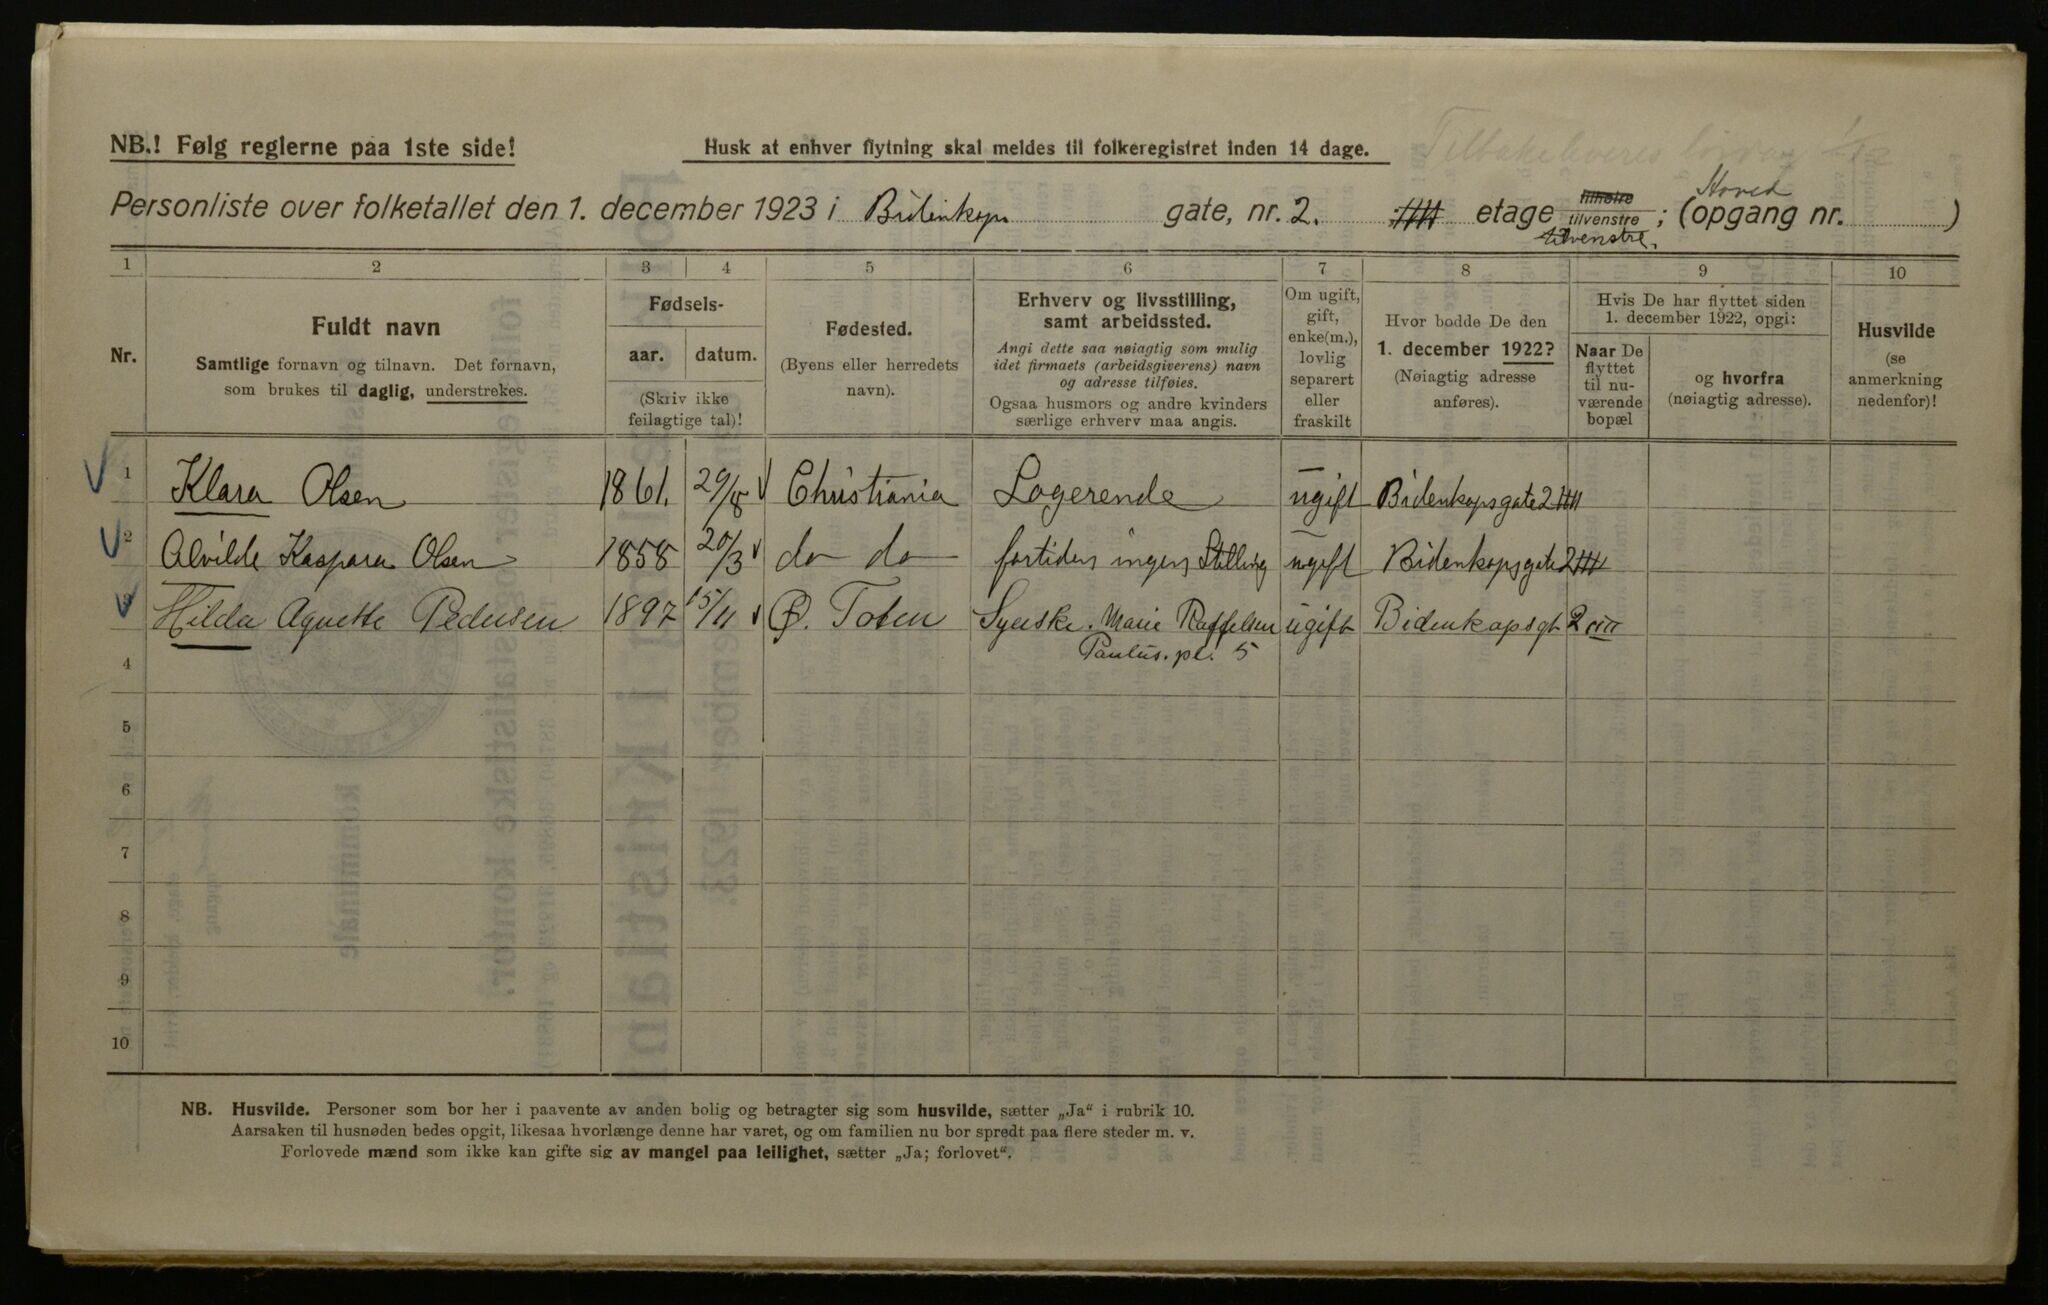 Tilbakeleveres lørdag 1/12
NB.! Følg reglerne paa 1ste side! Husk at enhver flytning skal meldes til folkeregistret inden 14 dage.
Hoved
Personliste over folketallet den 1. december 1923 i Bidenkops gate, nr. 2. IIII etage tilhøire tilvenstre ; (opgang nr. )
tilvenstre.
1 2 3 4 5 6 7 8 9 10
Nr.
Fuldt navn
Samtlige fornavn og tilnavn. Det fornavn,
som brukes til daglig, understrekes.
Fødsels-
aar. datum.
(Skriv ikke
feilagtige tal)!
Fødested.
(Byens eller herredets
navn).
Erhverv og livsstilling,
samt arbeidssted.
Angi dette saa nøiagtig som mulig
idet firmaets (arbeidsgiverens) navn
og adresse tilføies.
Ogsaa husmors og andre kvinders
særlige erhverv maa angis.
Om ugift,
gift,
enke(m.),
lovlig
separert
eller
fraskilt
Hvor bodde De den
1. december 1922?
(Nøiagtig adresse
anføres).
Hvis De har flyttet siden
1. december 1922, opgi:
Naar De
flyttet
til nu-
værende
bopæl
og hvorfra
(nøiagtig adresse).
Husvilde
(se
anmerkning
nedenfor)!
1 Klara Olsen 1861. 29/8 Christiania Logerende ugift Bidenkopsgate 2 IIII
2 Alvilde Kaspara Olsen 1858 20/3 do do fortiden ingen Stilling ugift Bidenkopsgate 2 IIII
3 Hilda Agnette Pedersen 1897 15/11 Ø. Toten Syerske. Marie Raffelsen ugift Bidenkopsgt 2 IIII
Paulus. pl. 5
4
5
6
7
8
9
10
NB. Husvilde. Personer som bor her i paavente av anden bolig og betragter sig som husvilde, sætter „Ja“ i rubrik 10.
Aarsaken til husnøden bedes opgit, likesaa hvorlænge denne har varet, og om familien nu bor spredt paa flere steder m. v.
Forlovede mænd som ikke kan gifte sig av mangel paa leilighet, sætter „Ja; forlovet“.